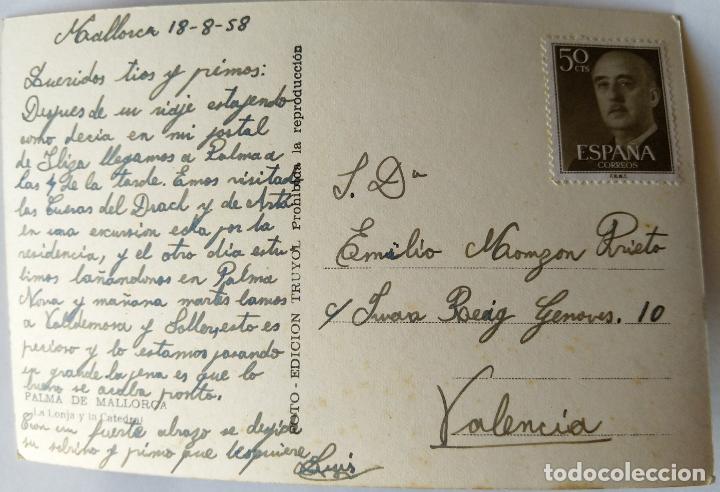 Mallorca 18-8-58
Queridos tios y primos:
Despues de un viaje estupendo
como decia en mi postal
de Ibiza llegamos a Palma a
las 4 de la tarde. Emos visitado
las Cuevas del Drach y de Artá
en una excursion esta por la
residencia, y el otro dia estu
bimos bañandonos en Palma
Nova y mañana martes bamos
a Valldemosa y Soller, esto es
pecioso y lo estamos pasando
en grande la pena es que lo
bueno se acaba pronto.
PALMA DE MALLORCA
(La Lonja y la Catedral)
Con un fuerte abrazo se despide
su sobrino y primo que les quiere
Luis
FOTO - EDICION TRUYOL Prohibida la reproducción
50 CTS
ESPAÑA
CORREOS
F.N.M.T.
S. Dn
Emilio Monzon Prieto
c/ Juan Reig Genoves. 10
Valencia
todocoleccion